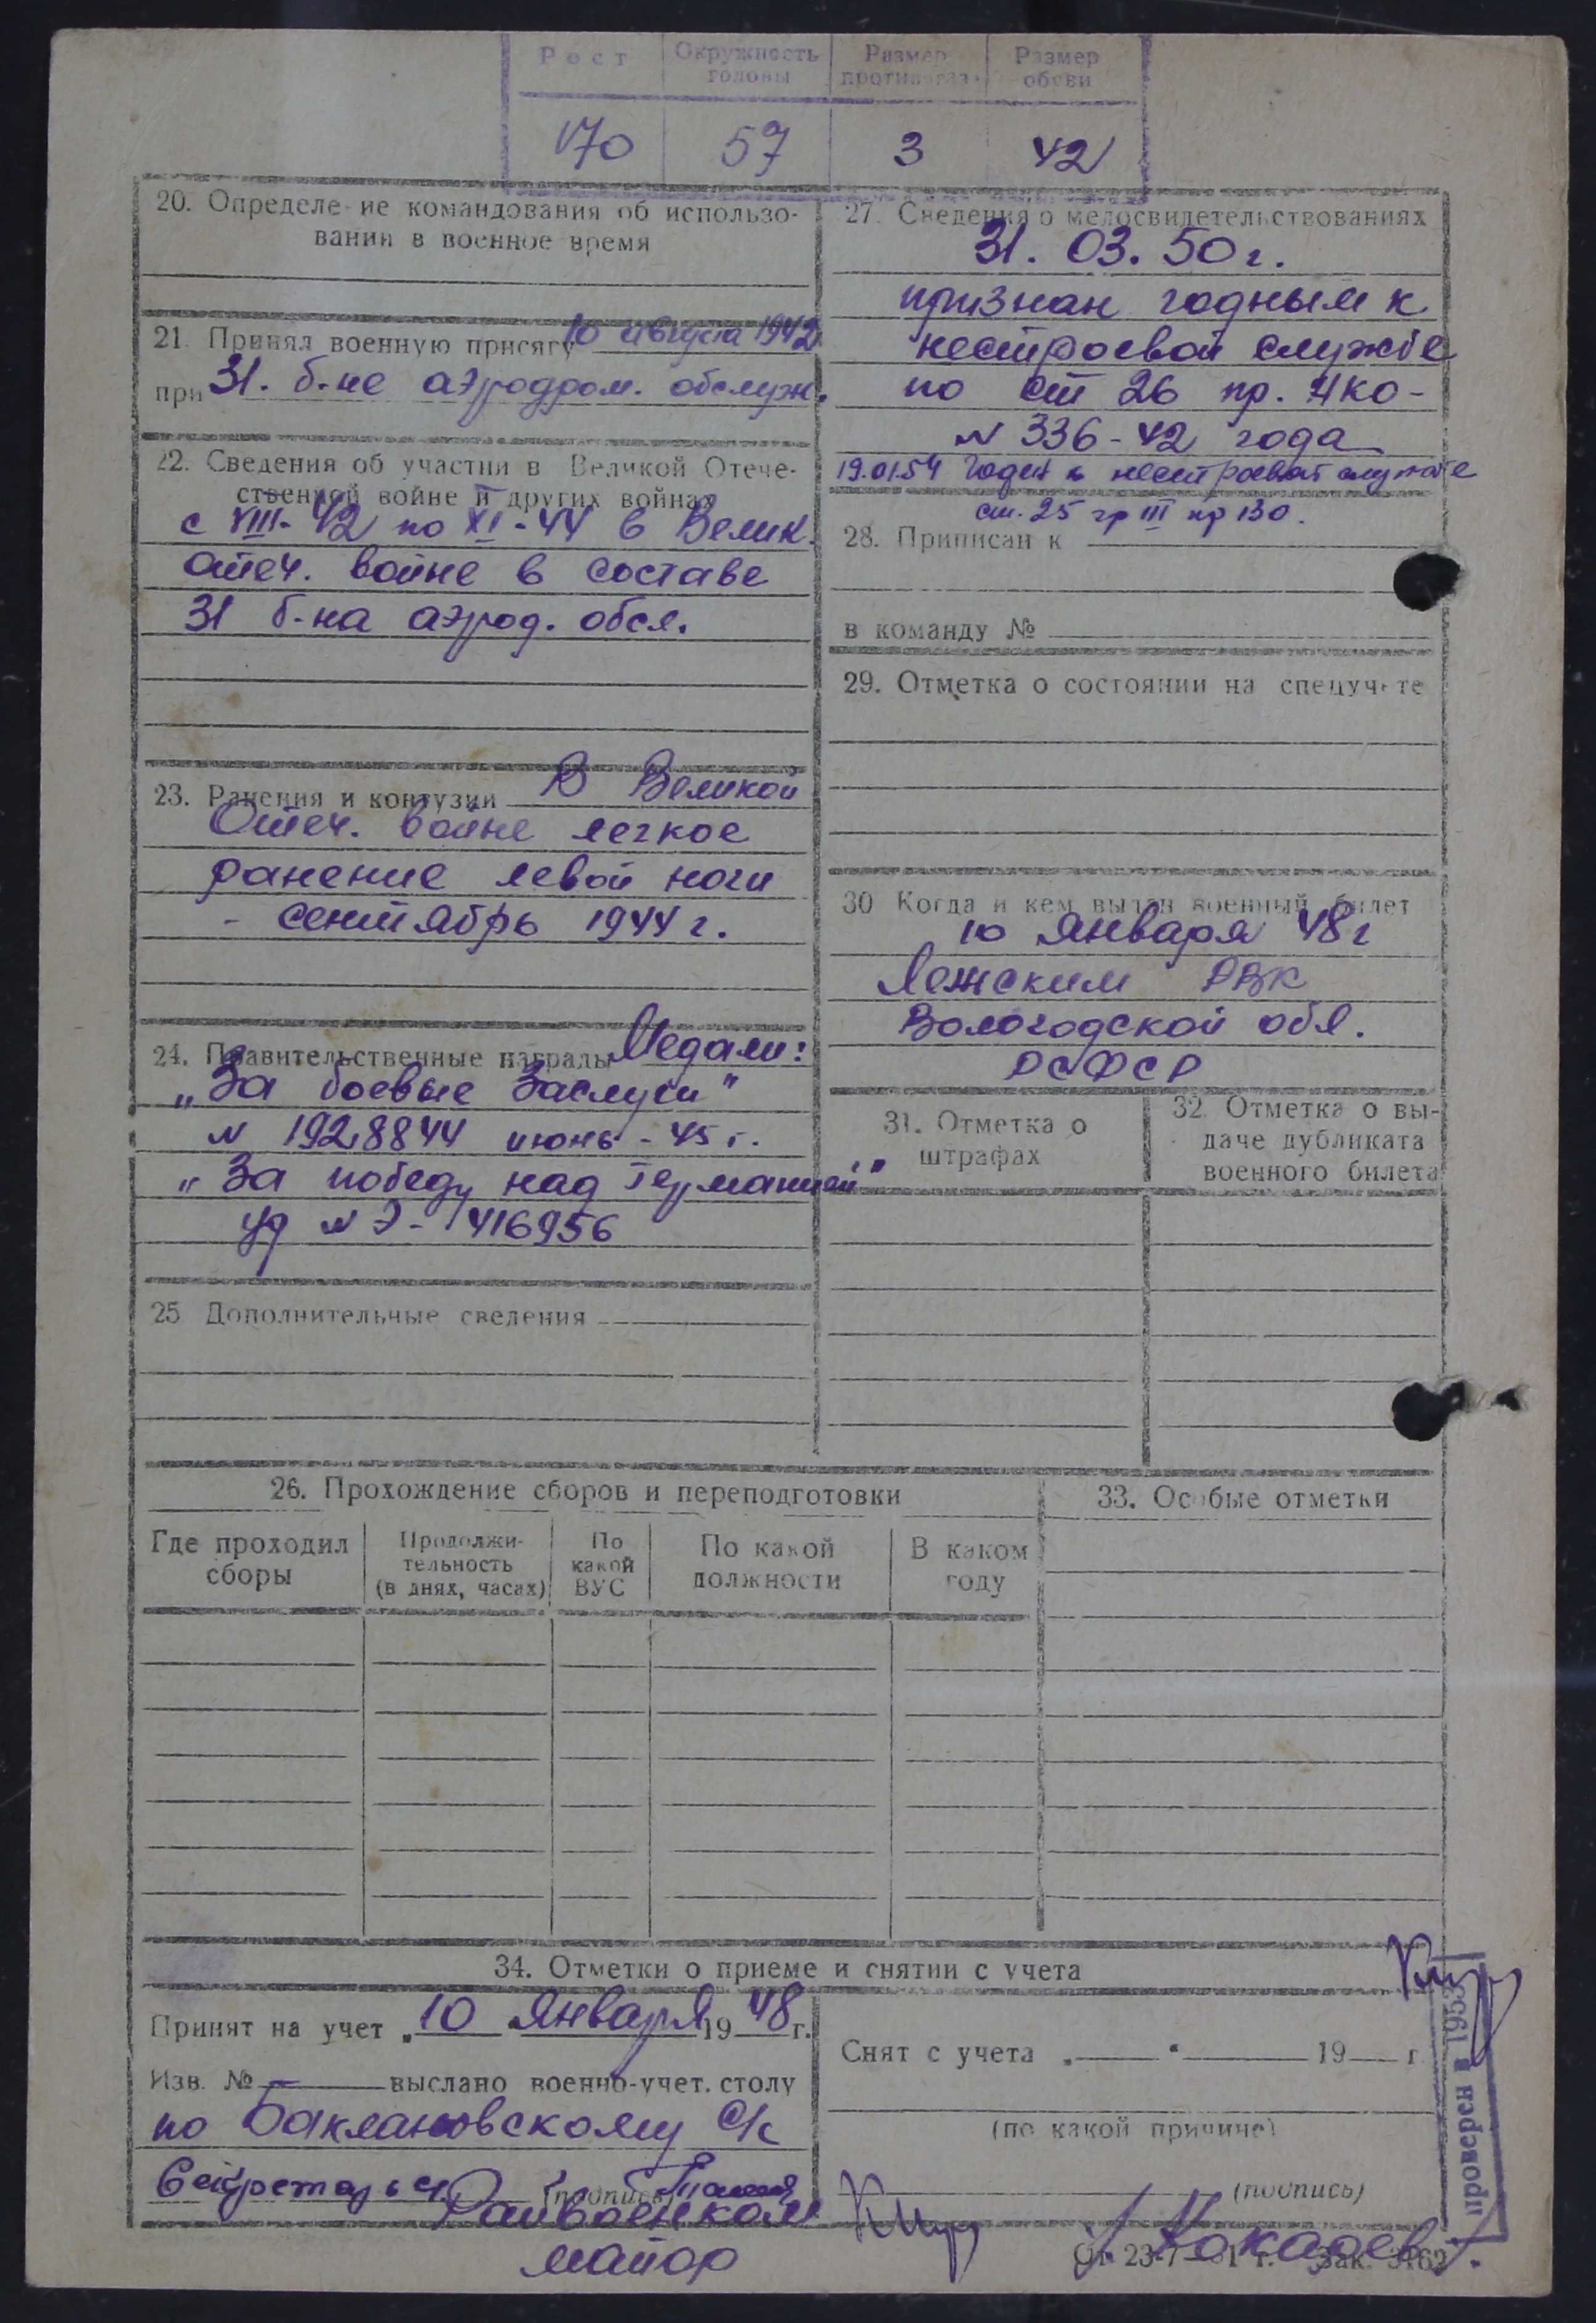 Рост
Окружность головы
Размер противогаза
Размер обуви
170 57 3 42
20. Определение командования об использо-
вании в военное время
21. Принял военную присягу 10 августа 1942
при 31. б-не аэродром. обслуж.
22. Сведения об участии в Великой Отече-
ственной войне и других войнах
с VIII-42 по XI-44 в Велик.
отеч. войне в составе
31 б-на аэрод. обсл.
23. Ранения и контузии В Великой
Отеч. войне легкое
ранение левой ноги
- сентябрь 1944 г.
24. Правительственные награды Медали:
„За боевые Заслуги"
N 1928844 июнь - 45 г.
„За победу над Германией"
уд N Э - 416956
25 Дополнительные сведения
27. Сведения о медосвидетельствованиях
31. 03. 50 г.
признан годным к
нестроевой службе
по ст 26 пр. НКО -
N 336 - 42 года
19.01.54 Годен к нестроевой службе
ст. 25 гр III пр 130.
28. Приписан к
в команду №
29. Отметка о состоянии на спецучете
30 Когда и кем выдан военный билет
10 января 48 г
Лежским РВК
Вологодской обл.
РСФСР
31. Отметка о
штрафах
32. Отметка о вы-
даче дубликата
военного билета
26. Прохождение сборов и переподготовки
Где проходил
сборы
Продолжи-
тельность
(в днях, часах)
По
какой
ВУС
По какой
должности
В каком
году
33. Особые отметки
34. Отметки о приеме и снятии с учета
Принят на учет „10 " Января 1948 г.
Изв. № — выслано военно-учет. столу
по Баклановскому с/с
Секретарь
(подпись)
Райвоенком
майор
Снят с учета „ " 19 г
(по какой причине)
(подпись)
От 23-7 1 г. Зак. 3162
проверен в 1953